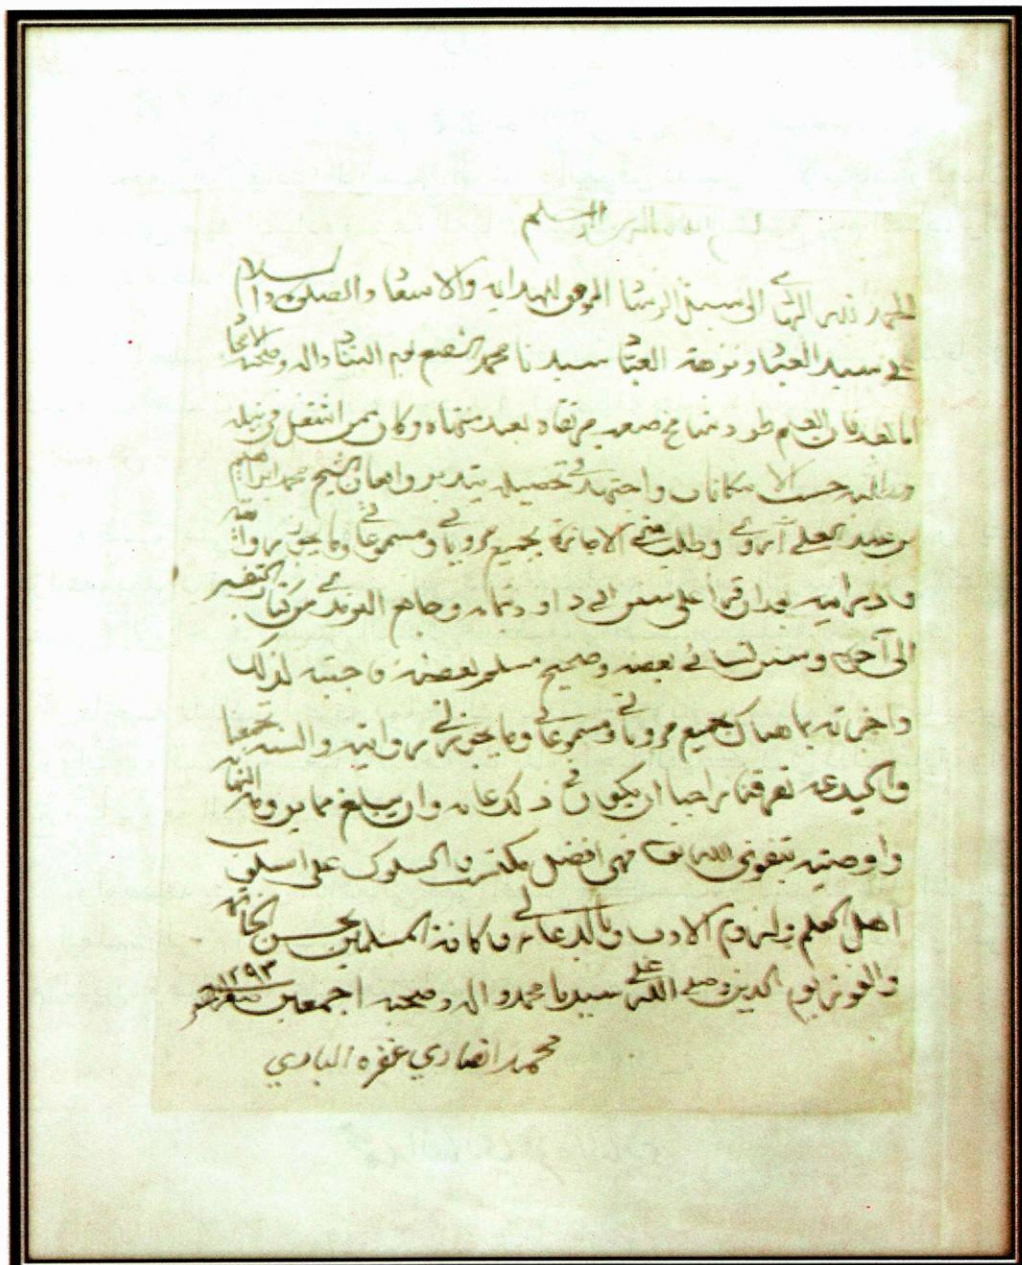 بسم الله الرحمن الرحيم
الحمد لله الهادي الى سبيل الرشاد الموفق للهدايه والاسعاد والصلوة والسلام
على سيد العباد ونزهة العباد سيدنا محمد الشفيع يوم التناد واله وصحبه الامجاد
اما بعد فان العلم طود شامخ صعب مرتقاه بعيد منتهاه وكان ممن اشتغل في نيله
وطلبه حسب الامكانات واجتهد في تحصيله بتدبر وامعان الشيخ محمد ابراهيم
بن عبد العلي آروي وطلب مني الاجازة بجميع مروياتي ومسموعاتي وما يجوز لي روايته
بعد ان قرأ على سنن ابي داود بتمامه وجامع الترمذي من كتاب التفسير
الى آخره وسنن نسائي بعضه وصحيح مسلم بعضه فاجبته لذلك
واجزته بجميع مروياتي ومسموعاتي وما يجوز لي روايته
راجيا ان يكون في ذلك
واوصيته بتقوى الله تعا فهي افضل والسلوك على اسلوب
اهل العلم ولزوم الادب وبالدعاء لي ولكافة المسلمين بحسن الخاتمه
والفوز يوم الدين وصلى الله على سيدنا محمد واله وصحبه اجمعين ١٢٩٣
محمد انصاري غفره الباري